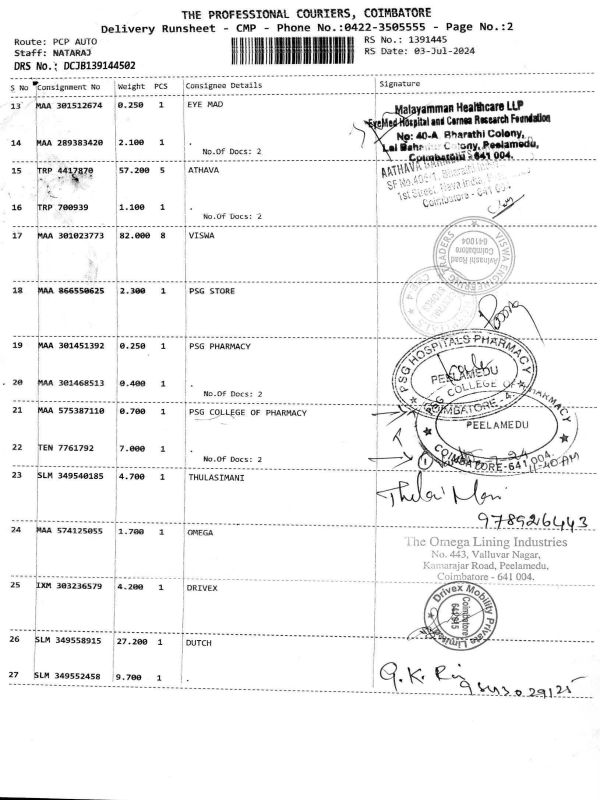 THE PROFESSIONAL COURIERS, COIMBATORE
Delivery Runsheet - CMP - Phone No.:0422-3505555 - Page No.:2
Route: PCP AUTO RS No.: 1391445
Staff: NATARAJ RS Date: 03-Jul-2024
DRS No.: DCJB139144502
S No Consignment No Weight PCS Consignee Details Signature
13 MAA 301512674 0.250 1 EYE MAD
Malayamman Healthcare LLP
EyeMed Hospital and Cornea Research Foundation
14 MAA 289383420 2.100 1 .
No: 40-A, Bharathi Colony,
No.Of Docs: 2
Colony, Peelamedu,
Coimbatore - 641 004.
15 TRP 4417870 57.200 5 ATHAVA
16 TRP 700939 1.100 1 .
No.Of Docs: 2
Coimbatore - 641 0
17 MAA 301023773 82.000 8 VISWA
VISWA ENGINEERING TRADERS
Avinashi Road
Coimbatore
641004
18 MAA 866550625 2.300 1 PSG STORE
19 MAA 301451392 0.250 1 PSG PHARMACY
PSG HOSPITALS PHARMACY
PEELAMEDU
COIMBATORE - 4.
20 MAA 301468513 0.400 1 .
No.Of Docs: 2
21 MAA 575387110 0.700 1 PSG COLLEGE OF PHARMACY
PSG COLLEGE OF PHARMACY
PEELAMEDU
COIMBATORE-641 004.
22 TEN 7761792 7.000 1 .
No.Of Docs: 2
11-40 AM
23 SLM 349540185 4.700 1 THULASIMANI
9789216443
24 MAA 574125055 1.700 1 OMEGA
The Omega Lining Industries
No. 443, Valluvar Nagar,
Kamarajar Road, Peelamedu,
Coimbatore - 641 004.
25 IXM 303236579 4.200 1 DRIVEX
Drivex Mobility Private Limited
Coimbatore
26 SLM 349558915 27.200 1 DUTCH
27 SLM 349552458 9.700 1 .
G.K.